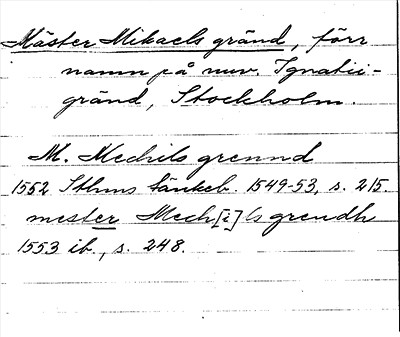 Mäster Mikaels gränd, förr
namn på nuv. Ignatii-
gränd, Stockholm.
M. Mechils grennd
1552 Sthms tänkeb. 1549-53, s. 215.
mester Mech[i]ls grendh
1553 ib., s. 248.